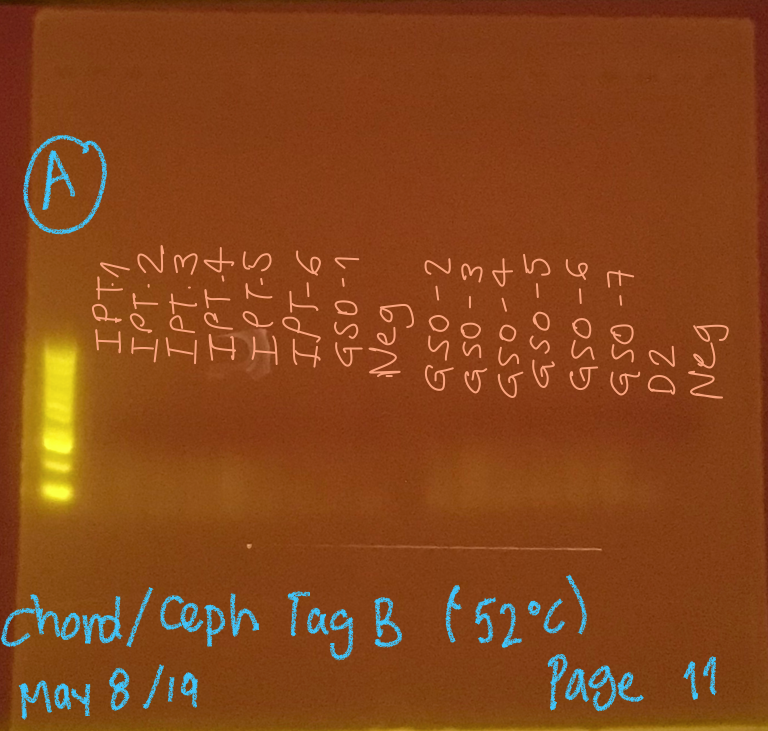 A
IPT-1
IPT-2
IPT-3
IPT-4
IPT-5
IPT-6
GSO-1
Neg
GSO-2
GSO-3
GSO-4
GSO-5
GSO-6
GSO-7
D2
Neg
Chord/Ceph Tag B (52°C)
May 8/19
Page 11